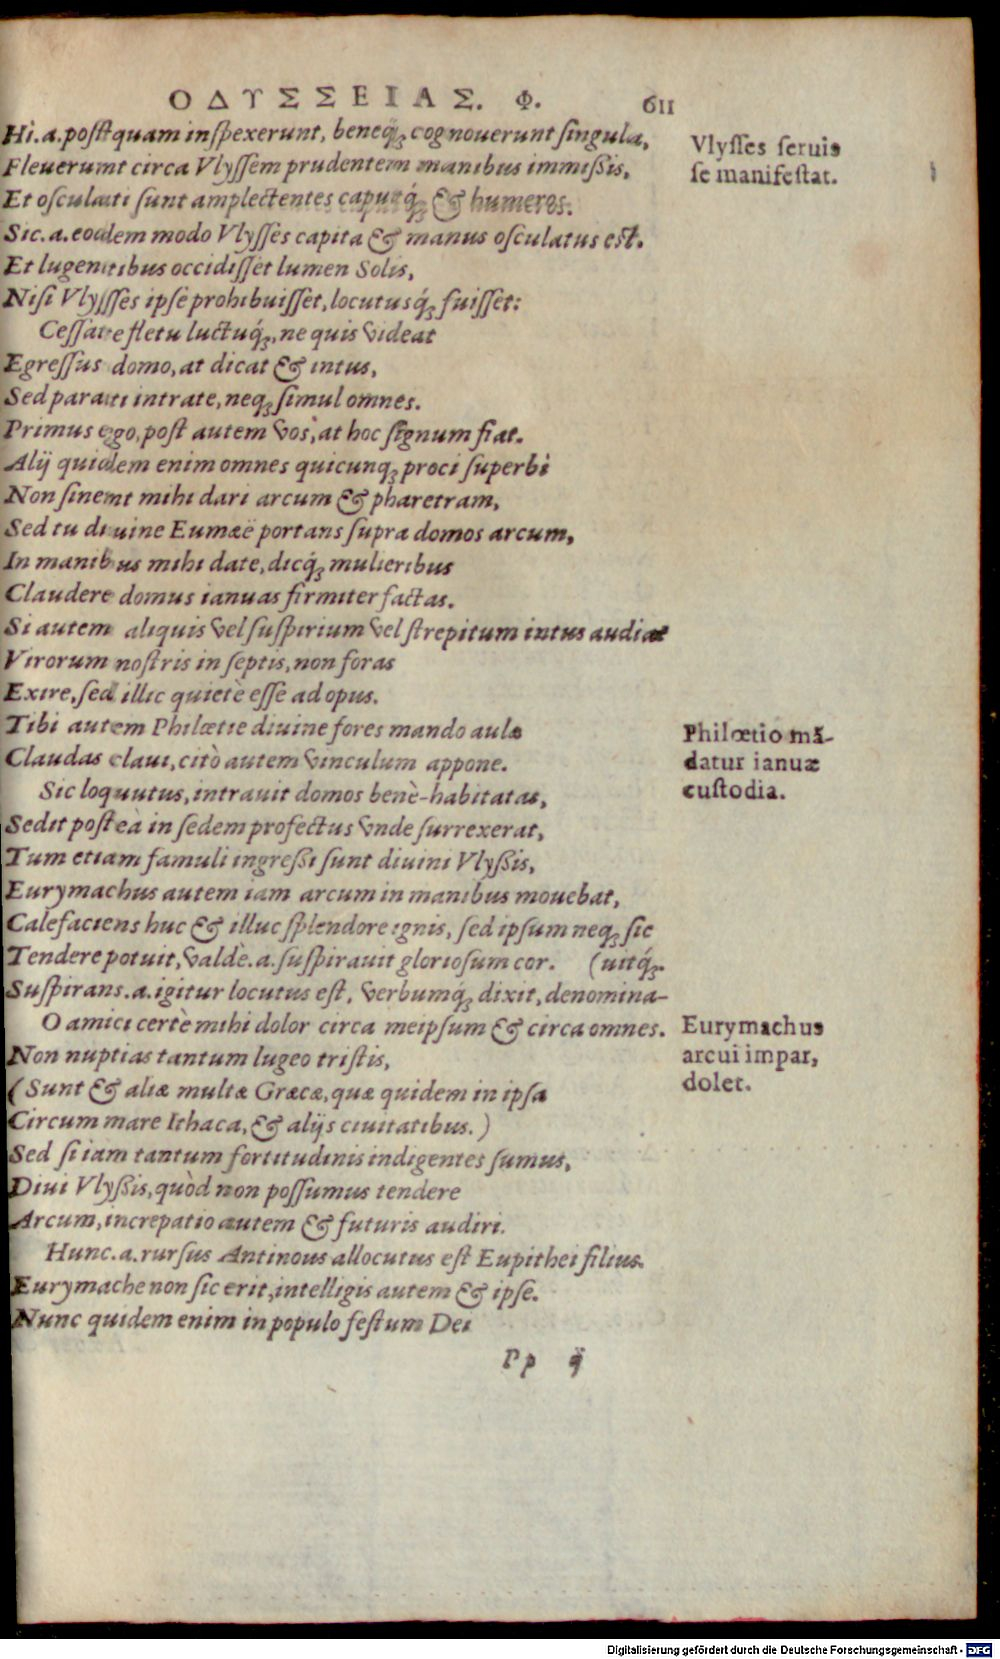 ΟΔΥΣΣΕΙΑΣ. Φ. 611
Hi.a.postquam inspexerunt, beneq́; cognouerunt singula,
Fleuerunt circa Vlyssem prudentem manibus immißis,
Et osculati sunt amplectentes caputq́; & humeros.
Sic.a.eodem modo Vlysses capita & manus osculatus est.
Et lugentibus occidisset lumen Solis,
Nisi Vlysses ipse prohibuisset, locutusq́; fuisset:
Cessate fletu luctuq́;, ne quis videat
Egressus domo, at dicat & intus,
Sed parati intrate, neq; simul omnes.
Primus ego, post autem vos, at hoc signum fiat.
Alij quidem enim omnes quicunq; proci superbi
Non sinent mihi dari arcum & pharetram,
Sed tu diuine Eumæë portans supra domos arcum,
In manibus mihi date, dicq́; mulieribus
Claudere domus ianuas firmiter factas.
Si autem aliquis vel suspirium vel strepitum intus audiat
Virorum nostris in septis, non foras
Exire, sed illic quietè esse ad opus.
Tibi autem Philœtie diuine fores mando aulæ
Claudas claui, citò autem vinculum appone.
Sic loquutus, intrauit domos benè-habitatas,
Sedit posteà in sedem profectus vnde surrexerat,
Tum etiam famuli ingreßi sunt diuini Vlyßis,
Eurymachus autem iam arcum in manibus mouebat,
Calefaciens huc & illuc splendore ignis, sed ipsum neq; sic
Tendere potuit, valdè.a.suspirauit gloriosum cor. (uitq́;.
Suspirans.a.igitur locutus est, verbumq́; dixit, denomina-
O amici certè mihi dolor circa meipsum & circa omnes.
Non nuptias tantum lugeo tristis,
(Sunt & aliæ multæ Græcæ, quæ quidem in ipsa
Circum mare Ithaca, & alijs ciuitatibus.)
Sed si iam tantum fortitudinis indigentes sumus,
Diui Vlyßis, quòd non possumus tendere
Arcum, increpatio autem & futuris audiri.
Hunc.a.rursus Antinous allocutus est Eupithei filius.
Eurymache non sic erit, intelligis autem & ipse.
Nunc quidem enim in populo festum Dei
Pp ij
Vlysses seruis
se manifestat.
Philœtio mā-
datur ianuæ
custodia.
Eurymachus
arcui impar,
dolet.
Digitalisierung gefördert durch die Deutsche Forschungsgemeinschaft - DFG